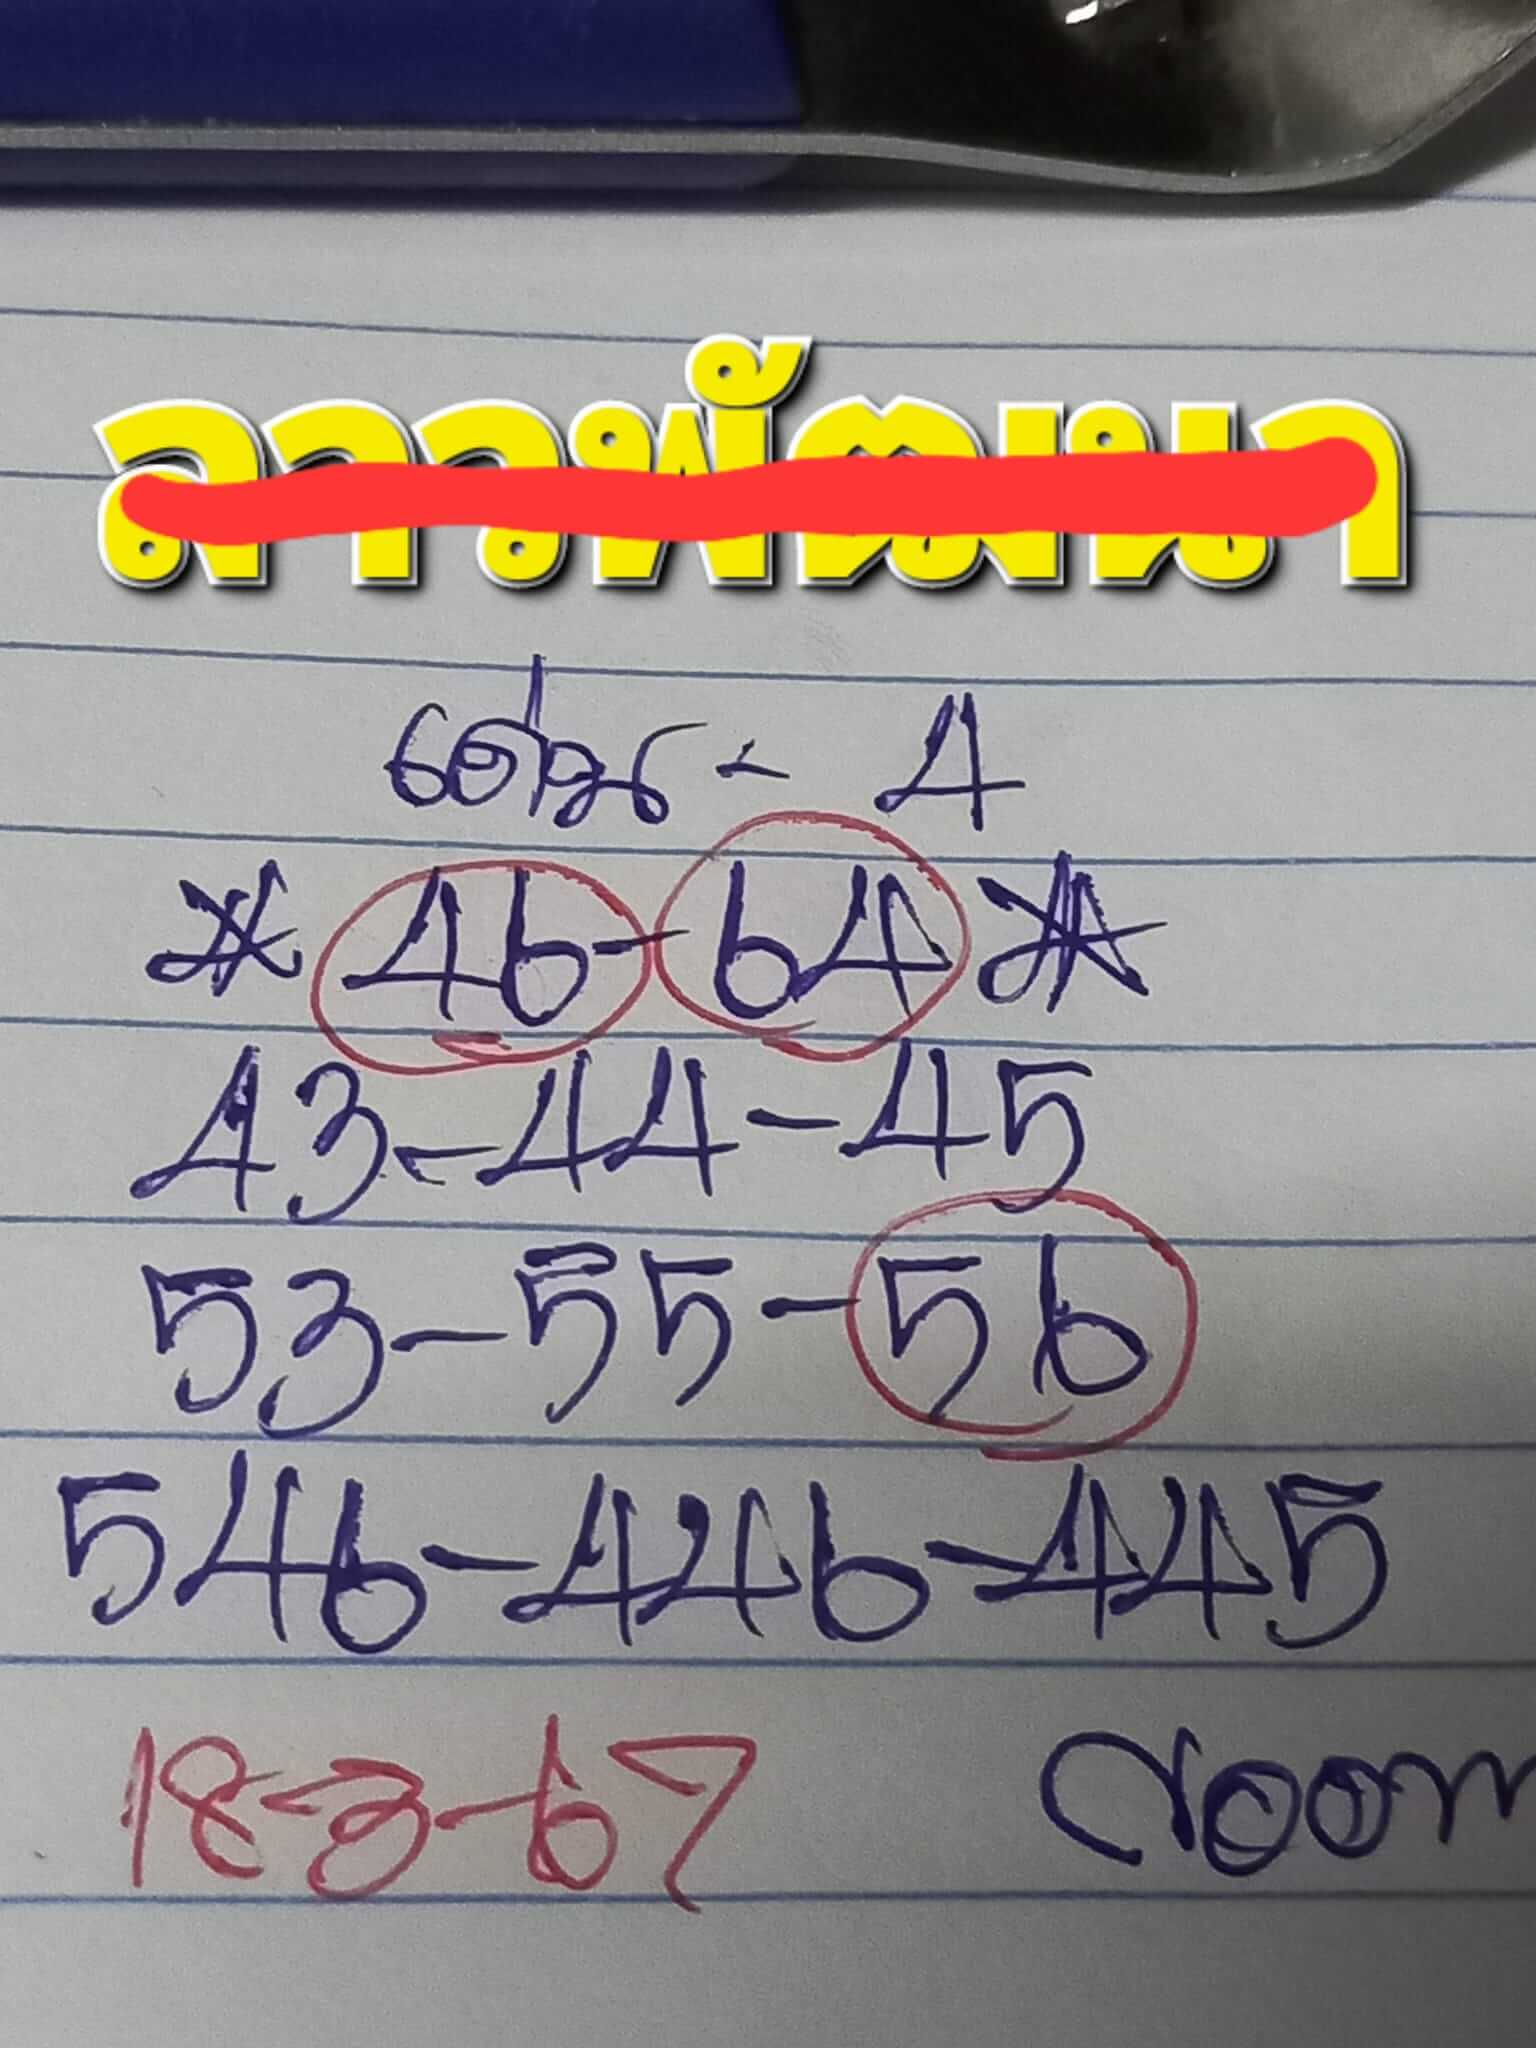 ลาวพัฒนา
เด่น - 4
46 - 64
43 - 44 - 45
53 - 55 - 56
546 - 446 - 445
18-3-67